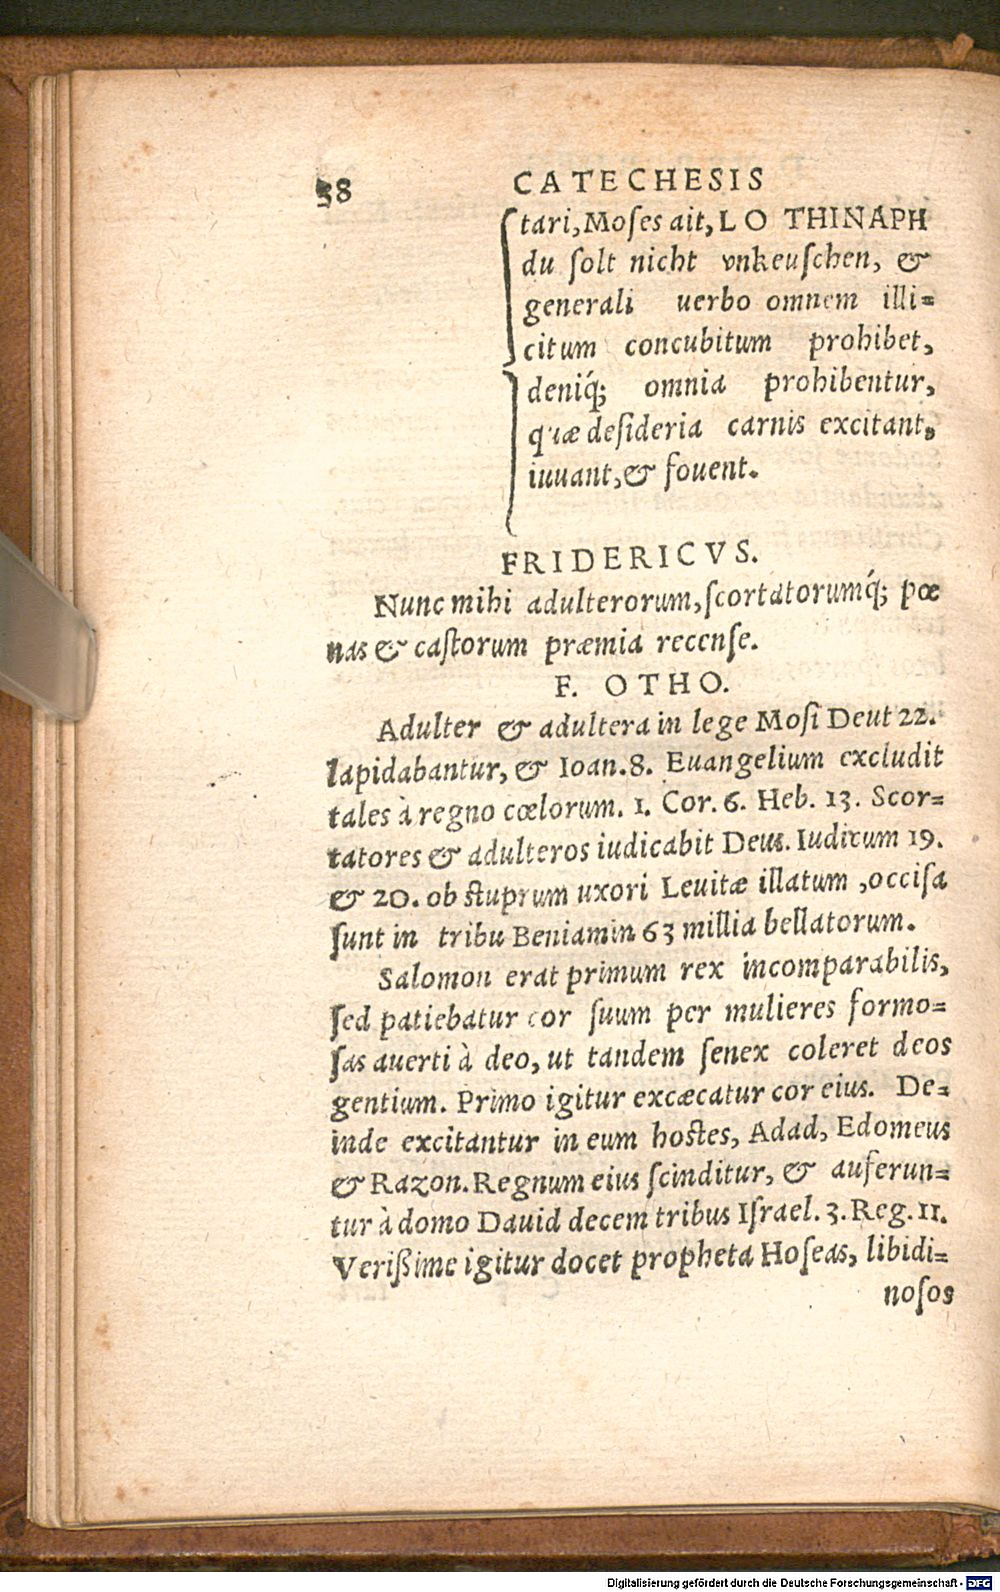 38 CATECHESIS
tari, Moſes ait, LO THINAPH
du ſolt nicht vnkeuſchen, &
generali uerbo omnem illi=
citum concubitum prohibet,
deniq́; omnia prohibentur,
quæ deſideria carnis excitant,
iuuant, & fouent.
FRIDERICVS.
Nunc mihi adulterorum, ſcortatorumq́; pœ
nas & caſtorum præmia recenſe.
F. OTHO.
Adulter & adultera in lege Moſi Deut 22.
lapidabantur, & Ioan. 8. Euangelium excludit
tales à regno cœlorum. 1. Cor. 6. Heb. 13. Scor=
tatores & adulteros iudicabit Deus. Iudicum 19.
& 20. ob ſtuprum uxori Leuitæ illatum, occiſa
ſunt in tribu Beniamin 63 millia bellatorum.
Salomon erat primum rex incomparabilis,
ſed patiebatur cor ſuum per mulieres formo=
ſas auerti à deo, ut tandem ſenex coleret deos
gentium. Primo igitur excæcatur cor eius. De=
inde excitantur in eum hoſtes, Adad, Edomeus
& Razon. Regnum eius ſcinditur, & auferun=
tur à domo Dauid decem tribus Iſrael. 3. Reg. 11.
Verißime igitur docet propheta Hoſeas, libidi=
noſos
Digitalisierung gefördert durch die Deutsche Forschungsgemeinschaft - DFG